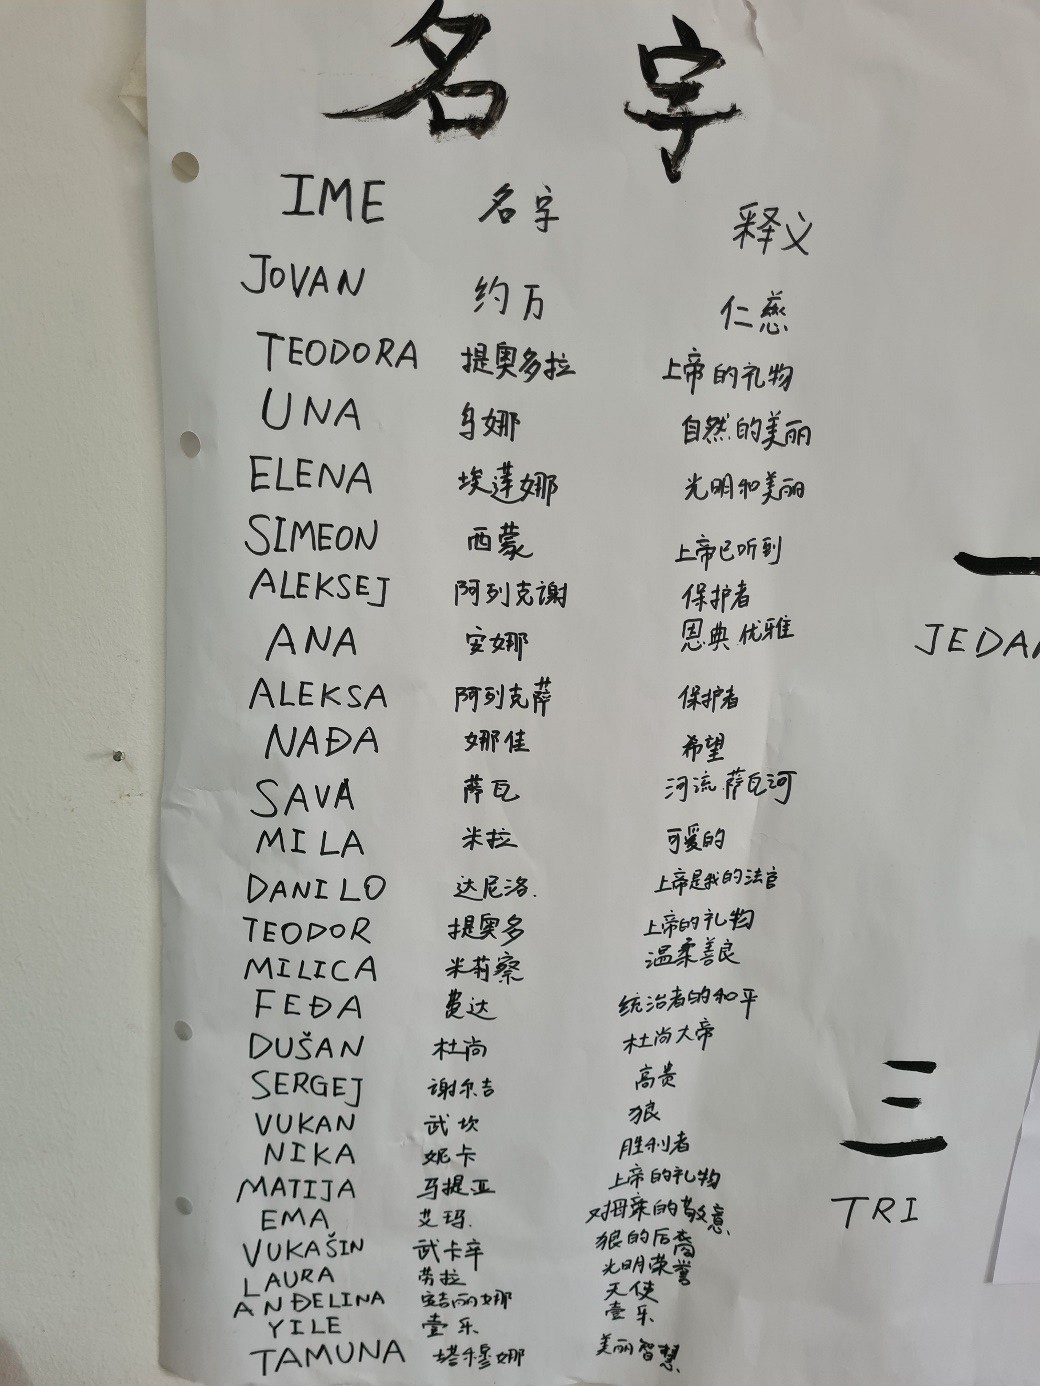 名字
IME 名字 释义
JOVAN 约万 仁慈
TEODORA 提奥多拉 上帝的礼物
UNA 乌娜 自然的美丽
ELENA 埃莲娜 光明和美丽
SIMEON 西蒙 上帝已听到
ALEKSEJ 阿列克谢 保护者
ANA 安娜 恩典 优雅
ALEKSA 阿列克萨 保护者
NAĐA 娜佳 希望
SAVA 萨瓦 河流.萨瓦河
MILA 米拉 可爱的
DANILO 达尼洛. 上帝是我的法官
TEODOR 提奥多 上帝的礼物
MILICA 米莉察 温柔善良
FEĐA 费达 统治者的和平
DUŠAN 杜尚 杜尚大帝
SERGEJ 谢尔吉 高贵
VUKAN 武坎 狼
NIKA 妮卡 胜利者
MATIJA 马提亚 上帝的礼物
EMA 艾玛. 对母亲的敬意
VUKAŠIN 武卡辛 狼的后裔
LAURA 劳拉 光明荣誉
ANĐELINA 安吉丽娜 天使
YILE 壹乐 壹乐
TAMUNA 塔穆娜 美丽智慧
一
JEDAN
三
TRI